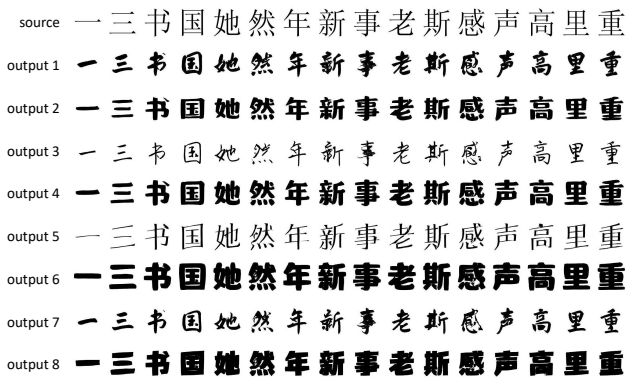 source 一三书国她然年新事老斯感声高里重
output 1 一三书国她然年新事老斯感声高里重
output 2 一三书国她然年新事老斯感声高里重
output 3 一三书国她然年新事老斯感声高里重
output 4 一三书国她然年新事老斯感声高里重
output 5 一三书国她然年新事老斯感声高里重
output 6 一三书国她然年新事老斯感声高里重
output 7 一三书国她然年新事老斯感声高里重
output 8 一三书国她然年新事老斯感声高里重